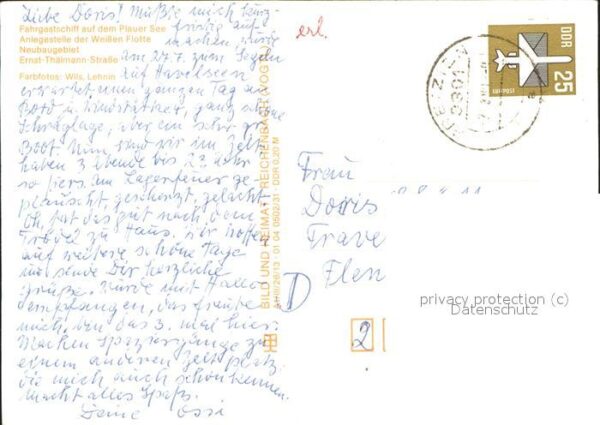 Liebe Doris! Mußte mich kurz-
fristig auf
machen, wurde
am 27.7. zum Segeln
auf Havelseen
erwartet und ganzen Tag an
Bord u. Windstärken, ganz schöne
Schräglage, aber ein sehr gr.
Boot. Nun sind wir im Zelt
haben 3 Abende bis 23 Uhr
so hier am Lagerfeuer ge-
plauscht, gescherzt, gelacht
Oh, tut das gut nach dem
Trödel zu Haus. Wir hoffen
auf weitere schöne Tage
und sende Dir herzliche
Grüße. Wurde mit Hallo
empfangen, das freute
mich, bin das 3. mal hier.
Machen Spaziergänge zu
einem anderen Zeltplatz
die mich auch schon kennen
macht alles Spaß.
Deine Ossi
Fahrgastschiff auf dem Plauer See
Anlegestelle der Weißen Flotte
Neubaugebiet
Ernst-Thälmann-Straße
Farbfotos: Wils, Lehnin
BILD UND HEIMAT REICHENBACH (VOGTL)
01 04 0502/31 · DDR 0,20 M
erl.
DDR
25
LUFTPOST
Frau
Doris
Trave
Flen
D
2
privacy protection (c)
Datenschutz